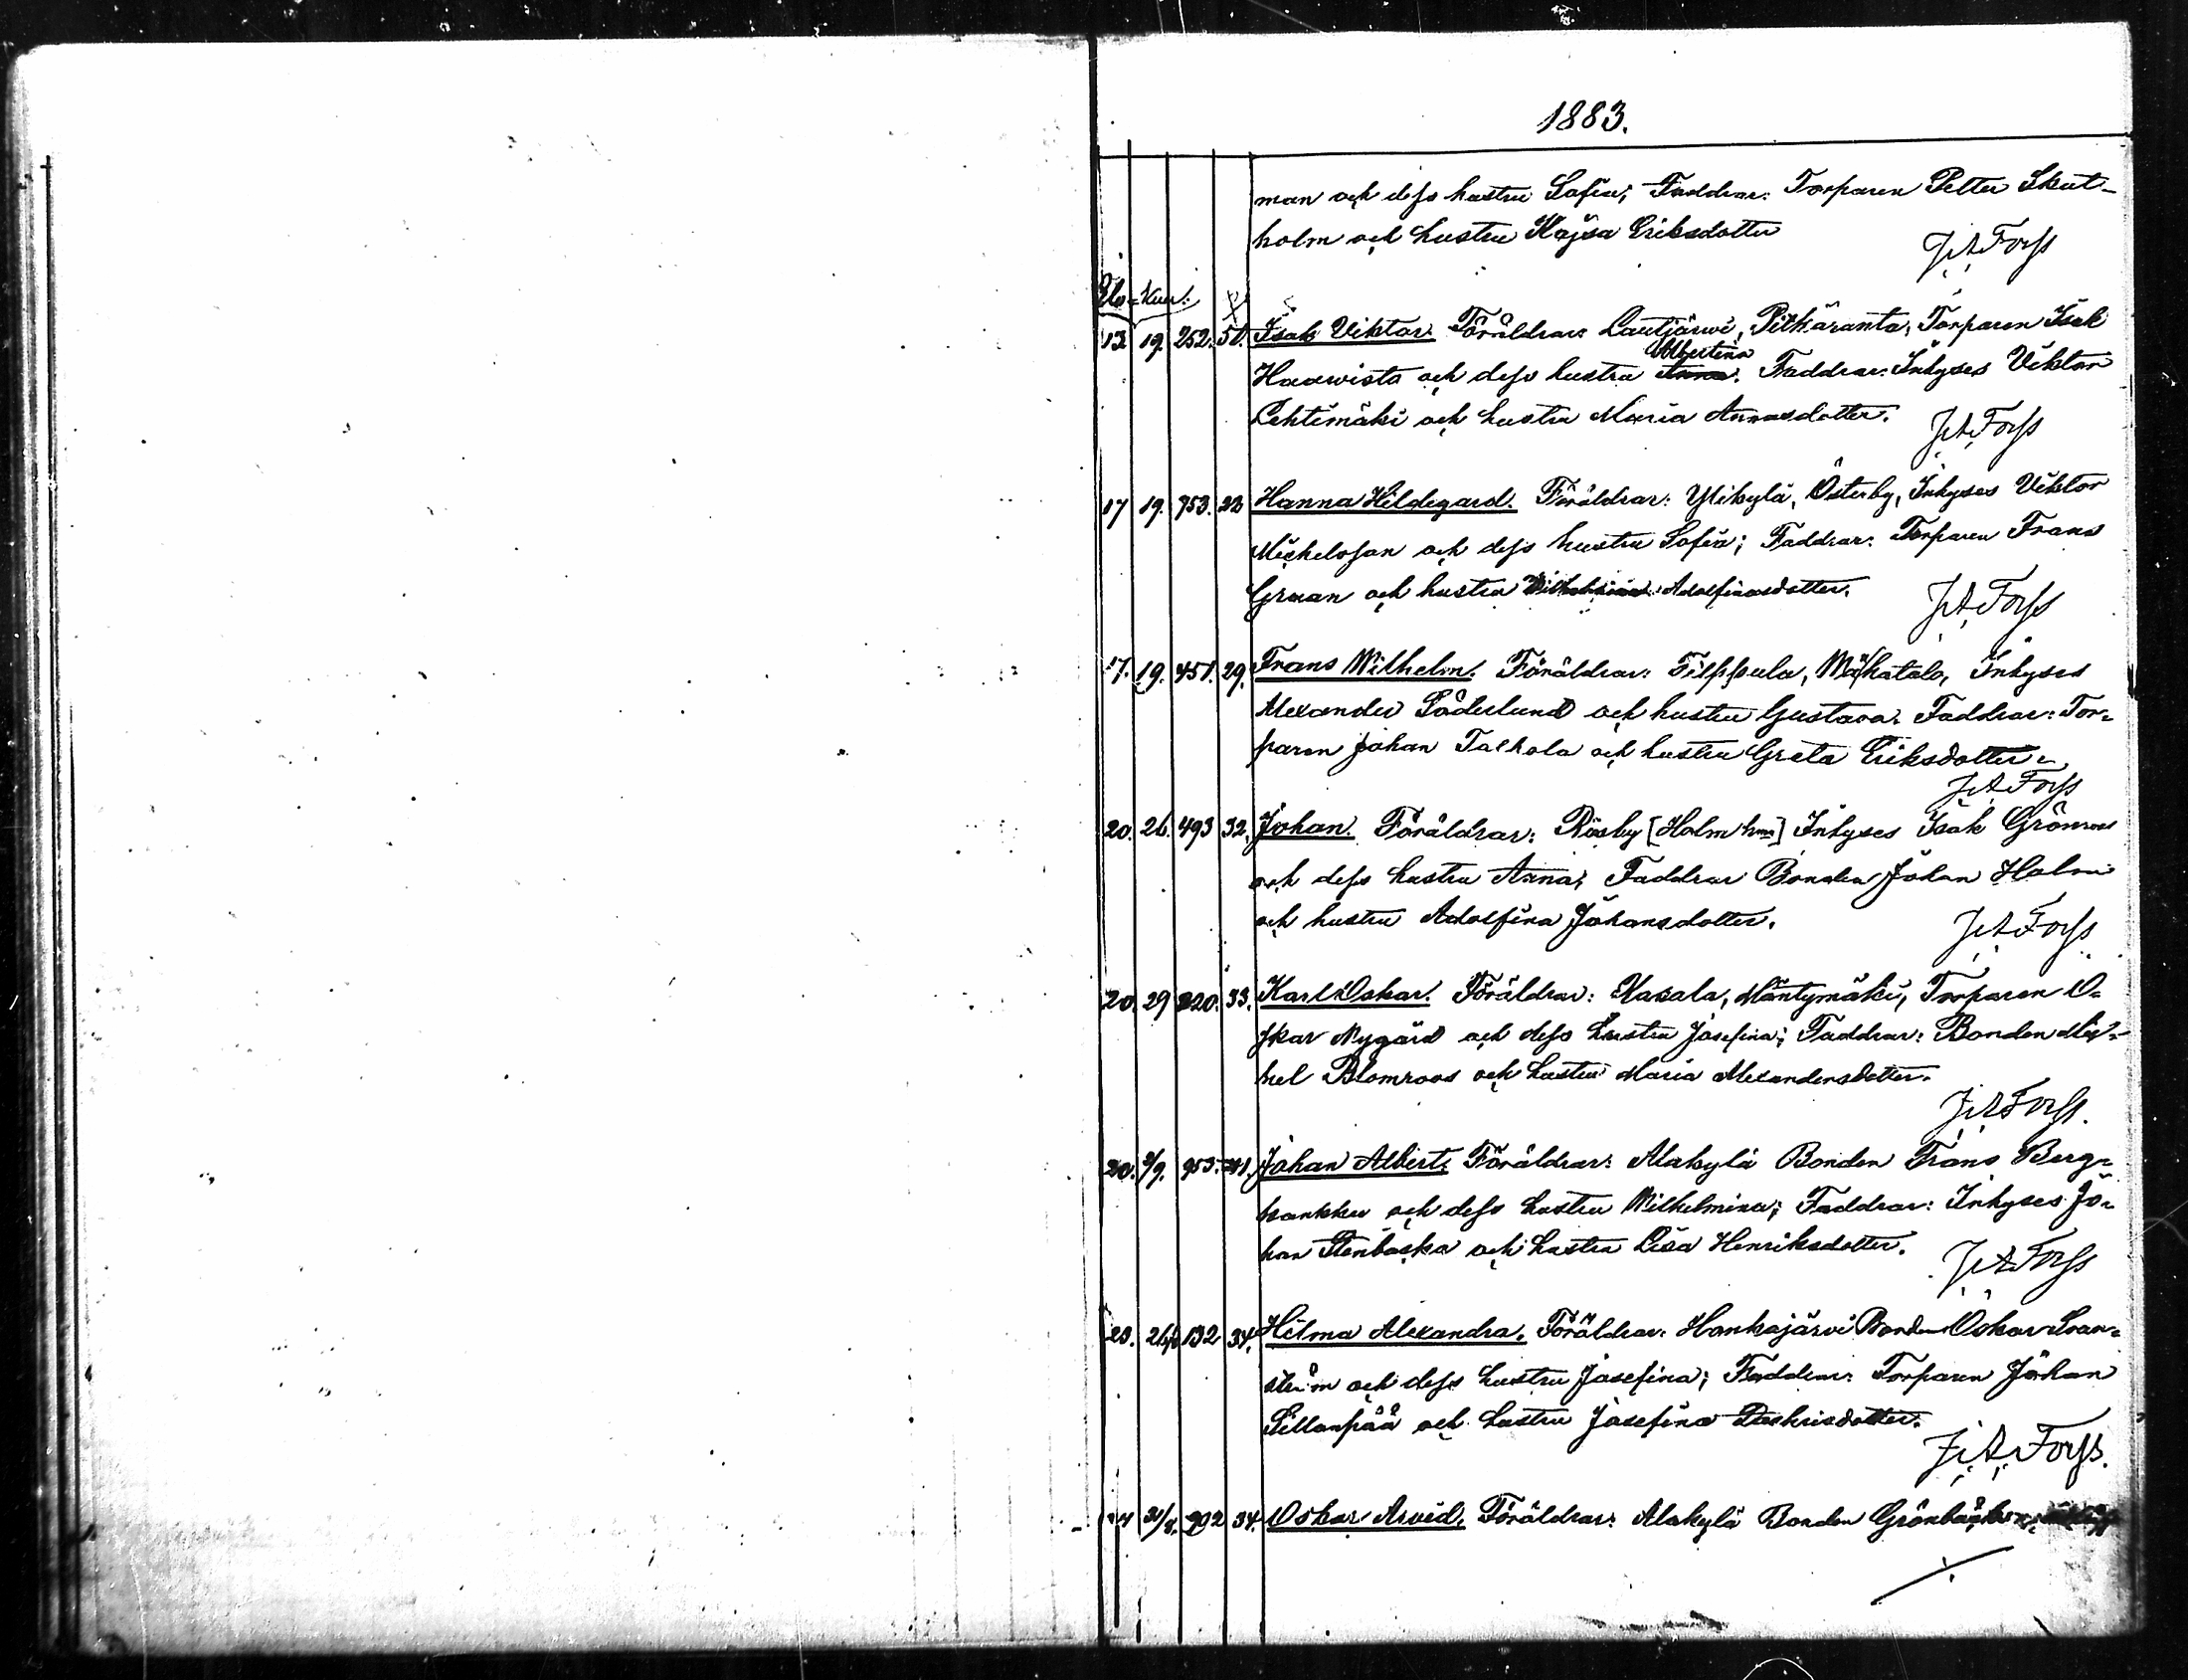 1883.
man och dess hustru Sofia; Faddrar: Torparen Petter Skut-
holm och hustru Kajsa Eriksdotter
J. A. Forss
Elo-kuu.
13 19. 252. 51. Isak Viktor. Föräldrar: Lautjärwi, Pitkäranta, Torparen Isak
Albertina
Haawisto och dess hustru Anna. Faddrar: Inhyses Viktor
Lehtimäki och hustru Maria Annasdotter.
J. A. Forss
17 19. 753. 22 Hanna Hildegard. Föräldrar: Ylikylä, Österby, Inhyses Viktor
Michelsson och dess hustru Sofia; Faddrar: Torparen Frans
Gruan och hustru Adolfinasdotter.
J. A. Forss
17. 19. 451. 29. Frans Wilhelm. Föräldrar: Filppula, Mäkitalo, Inhyses
Alexander Söderlund och hustru Gustava. Faddrar: Tor-
paren Johan Talkola och hustru Greta Eriksdotter.
J. A. Forss
20. 26. 493 32. Johan. Föräldrar: Rösby [Holm hmn] Inhyses Isak Grönroos
och dess hustru Anna; Faddrar Bonden Johan Holm
och hustru Adolfina Johansdotter.
J. A. Forss
20. 29 220. 33. Karl Oskar. Föräldrar: Kasala, Mäntymäki, Torparen O-
skar Nygård och dess hustru Josefina; Faddrar: Bonden Mic-
hel Blomroos och hustru Maria Alexandersdotter.
J. A. Forss.
20. 2/9. 953. 41. Johan Albert. Föräldrar: Alakylä Bonden Frans Berg-
kankku och dess hustru Wilhelmina; Faddrar: Inhyses Jo-
han Stenbacka och hustru Lisa Henriksdotter.
J. A. Forss
23. 26/8 132 34. Hilma Alexandra. Föräldrar: Honkajärvi Bonden Oskar Svan-
ström och dess hustru Josefina; Faddrar: Torparen Johan
Sillanpää och hustru Josefina
J. A. Forss.
24 31/8. 292 34. Oskar Arvid. Föräldrar: Alakylä Bonden Grönbacka